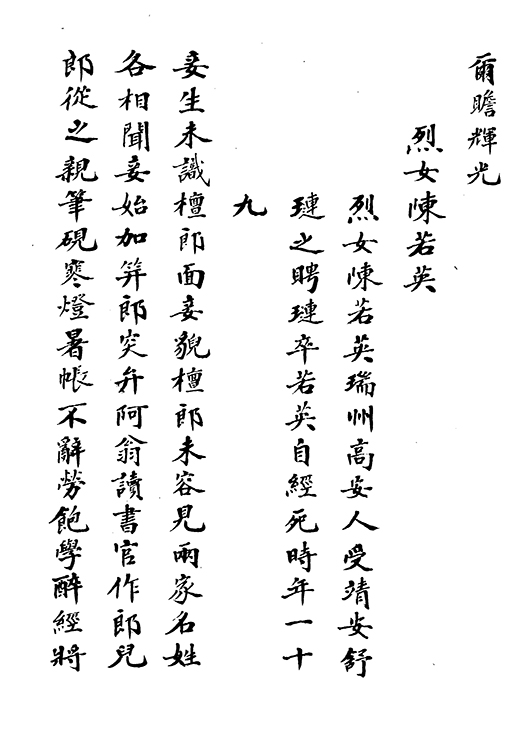 爾瞻輝光
烈女陳若英
烈女陳若英瑞州高安人受靖安舒
璉之聘璉卒若英自經死時年一十
九
妾生未識檀郎面妾貌檀郎未容見兩家名姓
各相聞妾始加笄郎突弁阿翁讀書官作郎兒
郎從之親筆硯寒燈暑帳不辭勞飽學醉經將